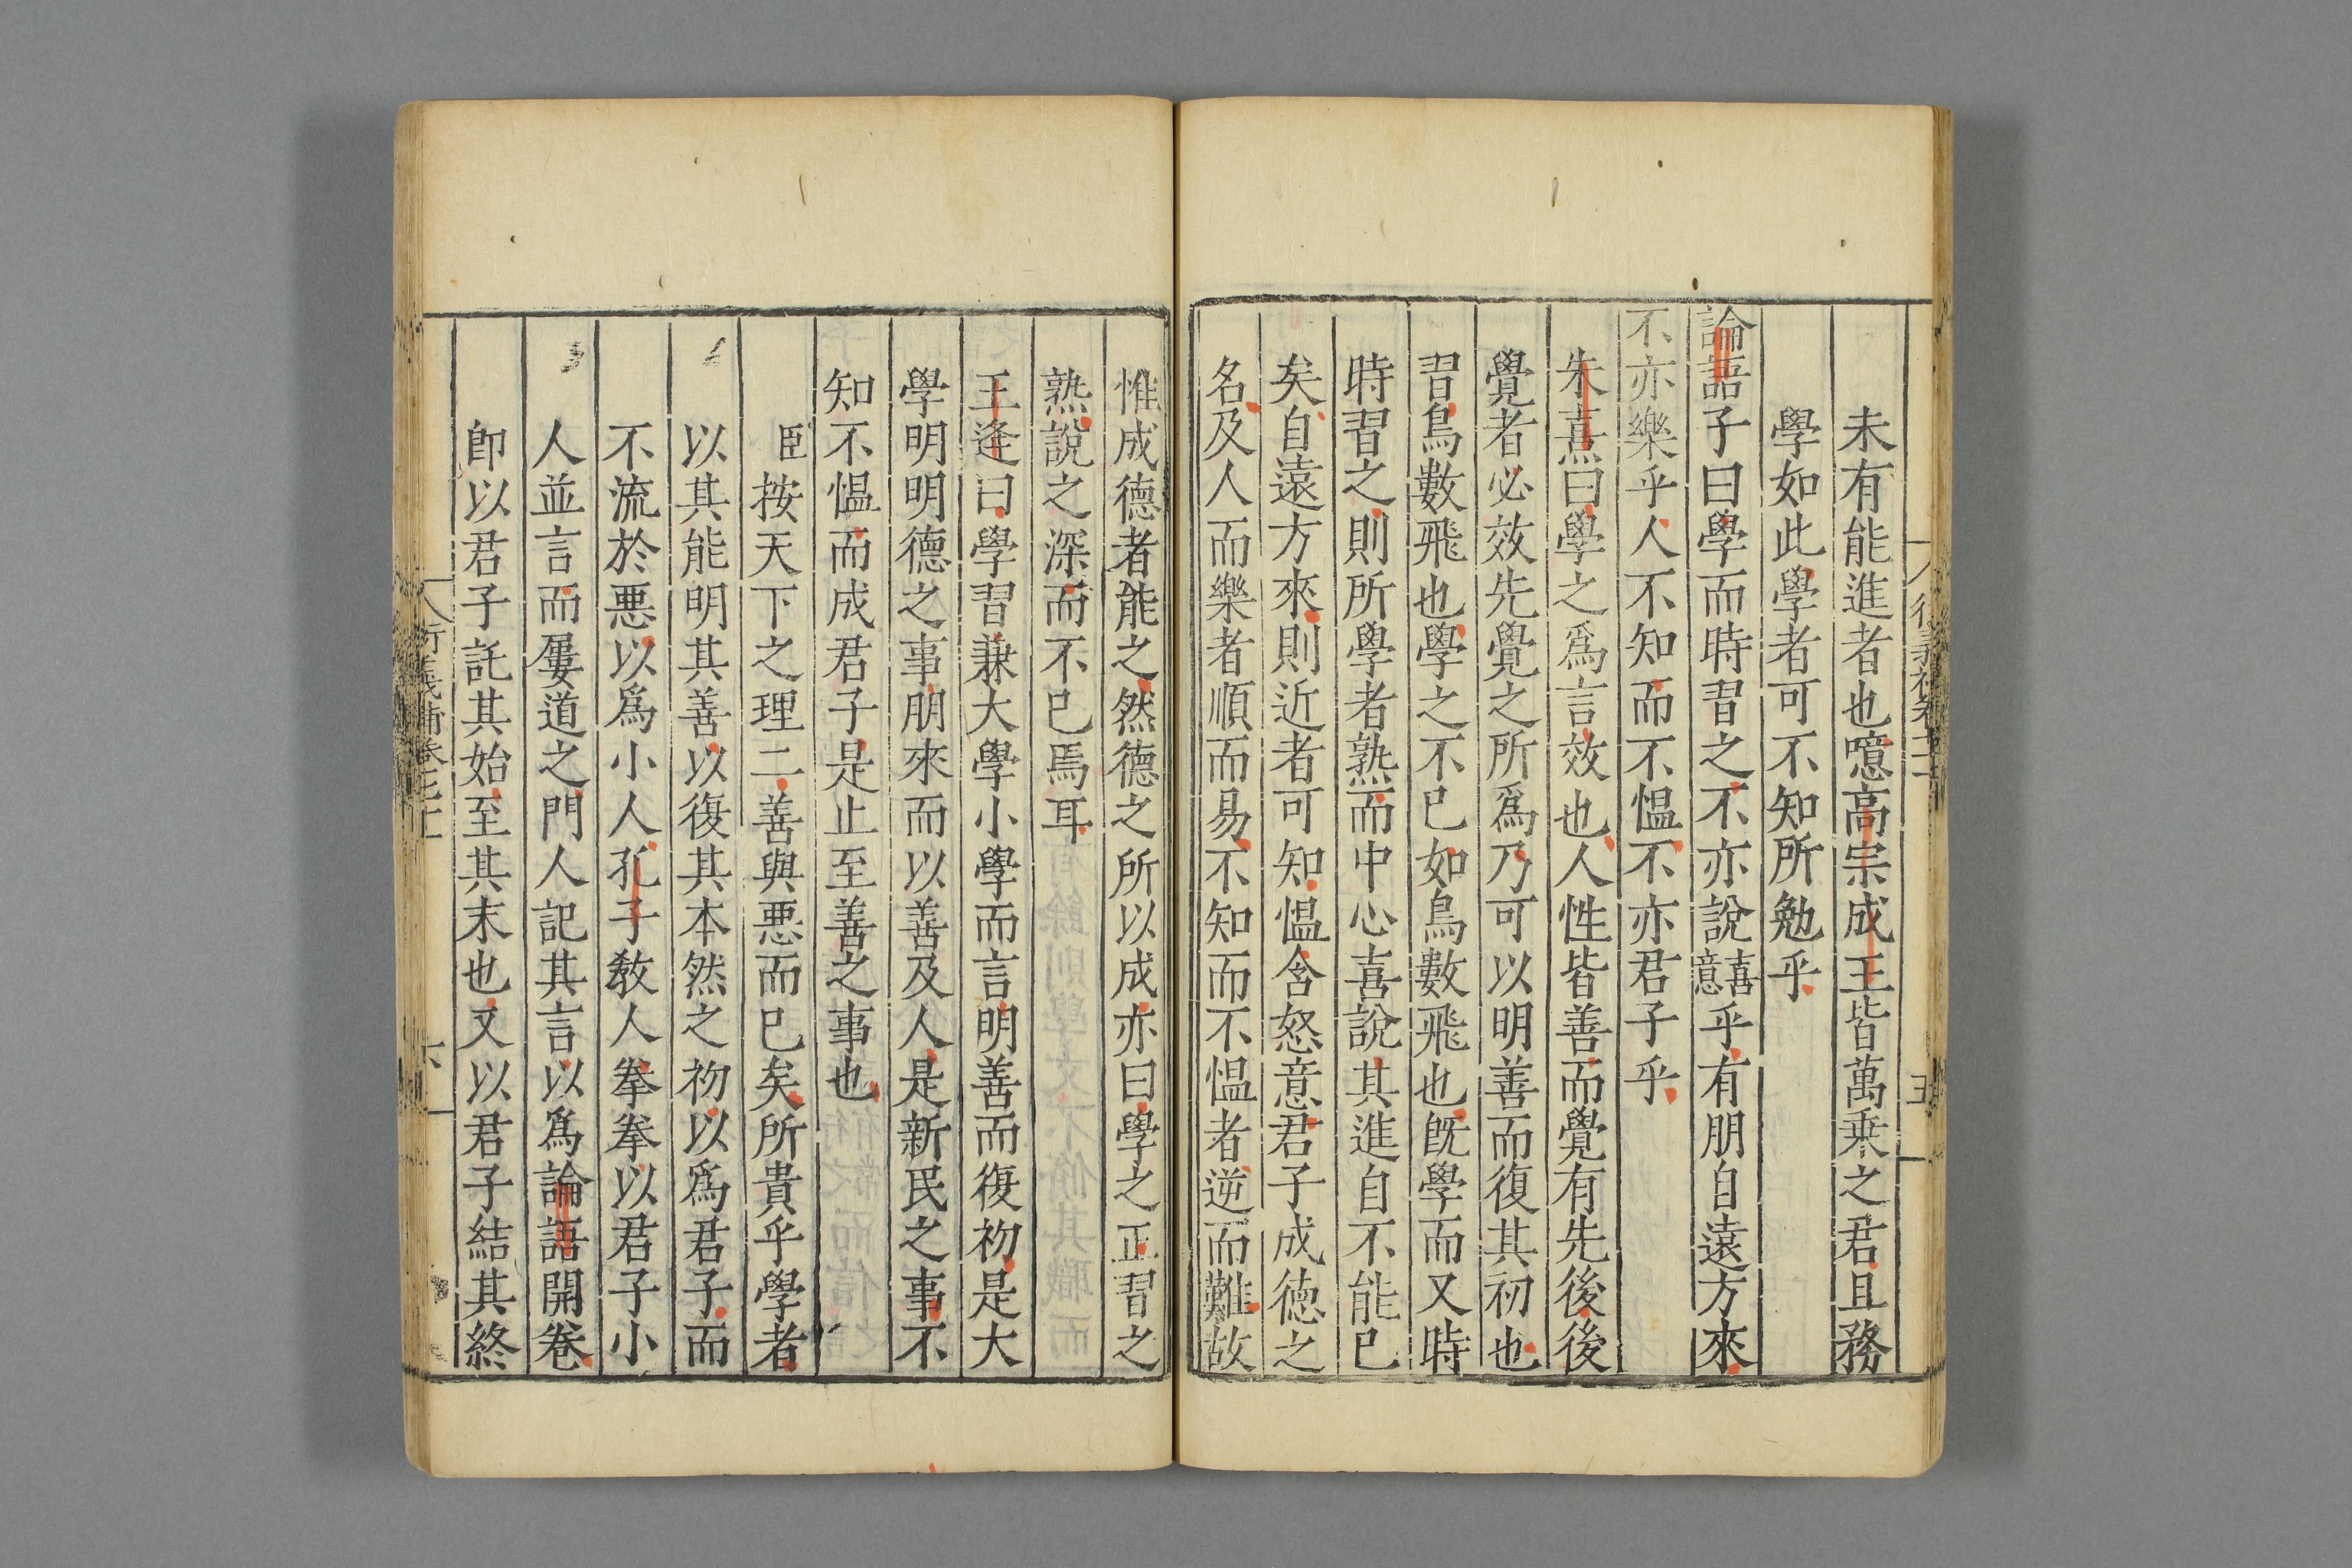 未有能進者也噫高宗成王皆萬乘之君且務
學如此學者可不知所勉乎
論語子曰學而時習之不亦說喜意乎有朋自遠方來
不亦樂乎人不知而不慍不亦君子乎
朱熹曰學之為言效也人性皆善而覺有先後後
覺者必效先覺之所為乃可以明善而復其初也
習鳥數飛也學之不已如鳥數飛也既學而又時
時習之則所學者熟而中心喜說其進自不能已
矣自遠方來則近者可知慍含怒意君子成德之
名及人而樂者順而易不知而不慍者逆而難故
五
惟成德者能之然德之所以成亦曰學之正習之
熟說之深而不已焉耳
王逢曰學習兼大學小學而言明善而復初是大
學明明德之事朋來而以善及人是新民之事不
知不慍而成君子是止至善之事也
臣按天下之理二善與惡而已矣所貴乎學者
以其能明其善以復其本然之初以為君子而
不流於惡以為小人孔子教人拳拳以君子小
人並言而屢道之門人記其言以為論語開卷
即以君子託其始至其末也又以君子結其終